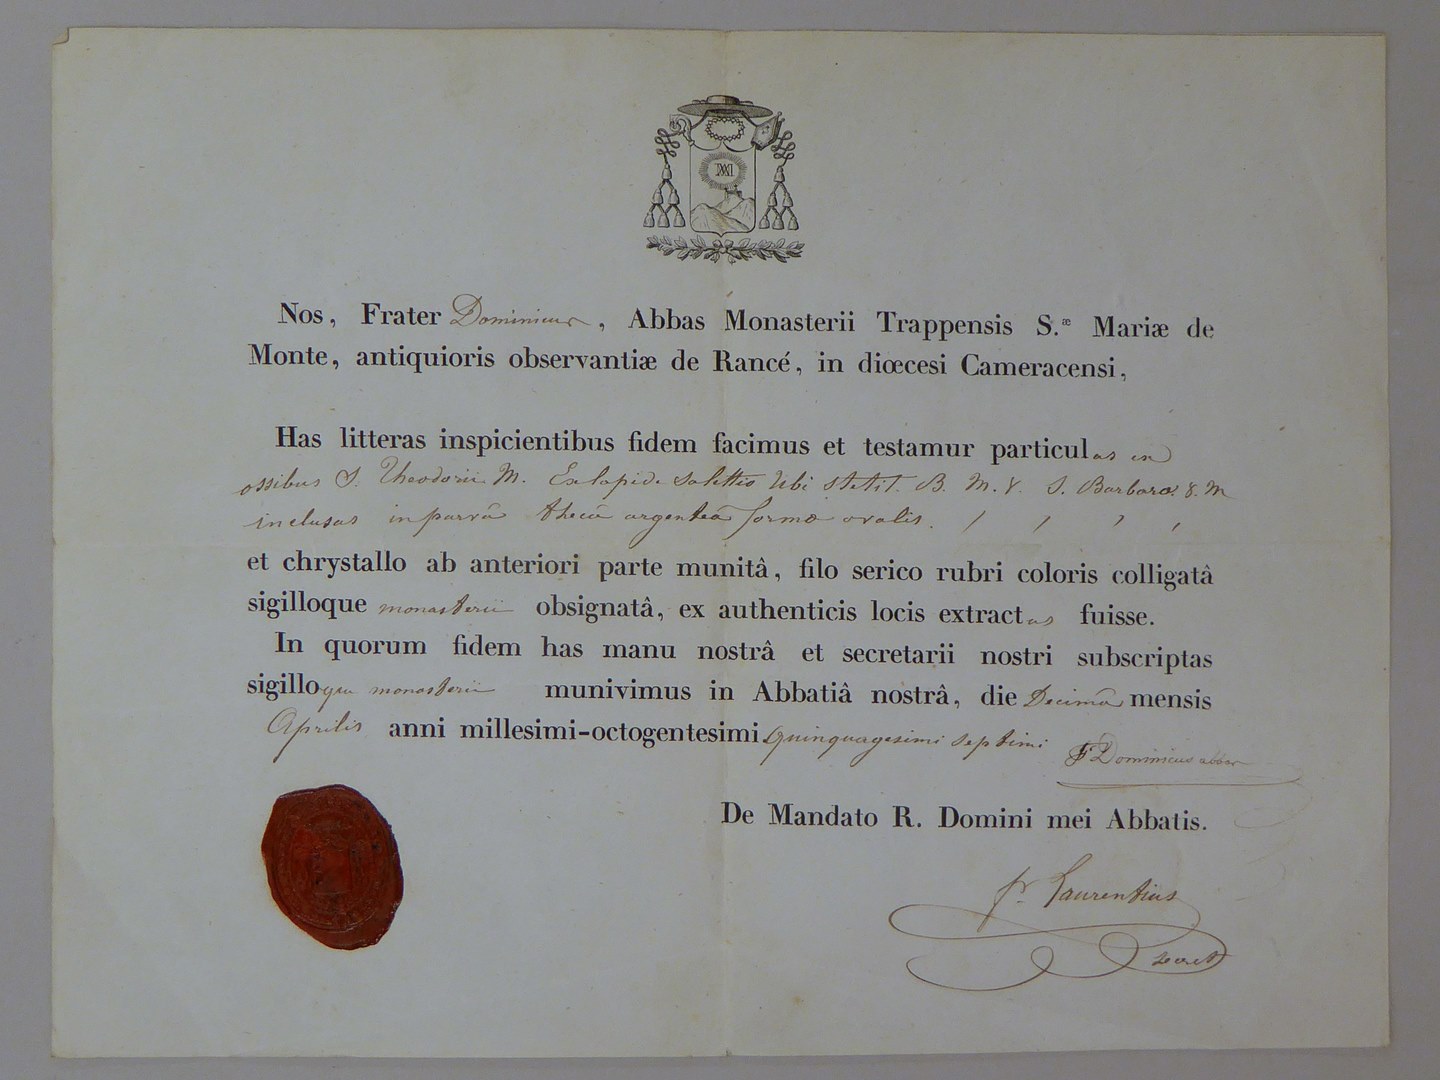 Nos, Frater Dominicus, Abbas Monasterii Trappensis S.æ Mariæ de
Monte, antiquioris observantiæ de Rancé, in diœcesi Cameracensi,
Has litteras inspicientibus fidem facimus et testamur particulas ex
ossibus S. Theodorii M. Ex lapide Salettis ubi stetit B. M. V. S. Barbara V. M
inclusas in parvâ thecâ argenteâ formæ ovalis.
et chrystallo ab anteriori parte munitâ, filo serico rubri coloris colligatâ
sigilloque monasterii obsignatâ, ex authenticis locis extractas fuisse.
In quorum fidem has manu nostrâ et secretarii nostri subscriptas
sigilloque monasterii munivimus in Abbatiâ nostrâ, die Decimâ mensis
Aprilis anni millesimi-octogentesimi quinquagesimi septimi
F Dominicus abbas
De Mandato R. Domini mei Abbatis.
fr. Laurentius
secret